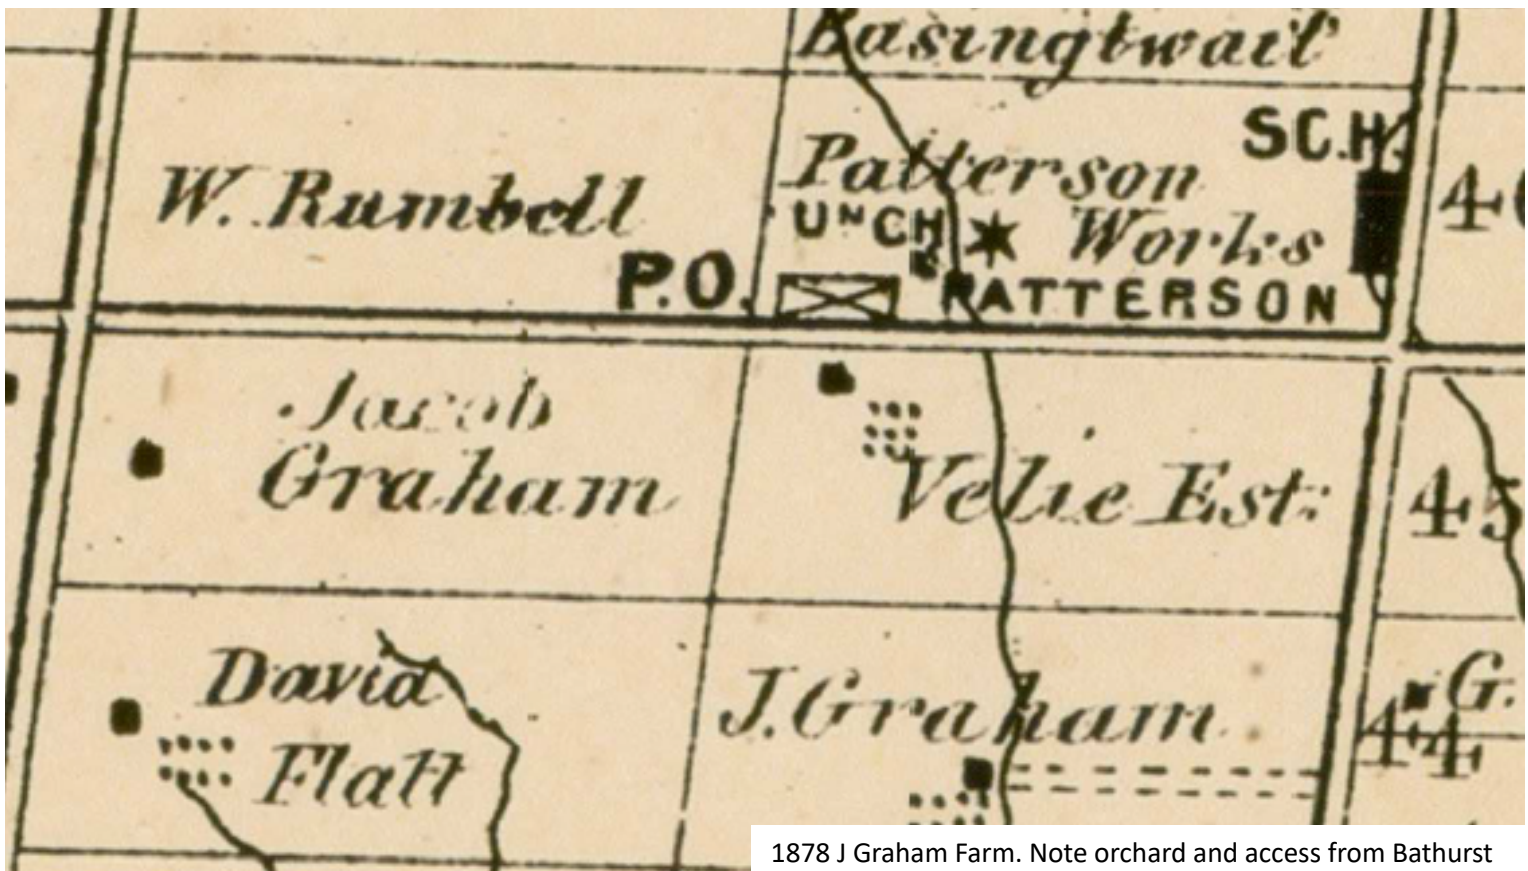 Basingtwait
SC.H.
W. Rumbell
Patterson
Works
Uᴺ CH
P.O.
PATTERSON
Jacob
Graham
Velie Est:
45
David
Flatt
J. Graham
G.
44
1878 J Graham Farm. Note orchard and access from Bathurst